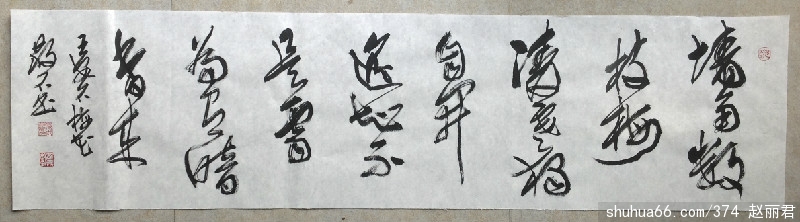 墙角数
枝梅
凌寒独
自开
遥知不
是雪
为有暗
香来
王安石梅花
shuhua66.com/374 赵丽君